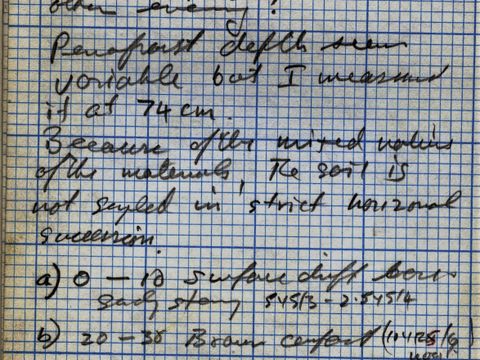 other evening?
Permafrost depth seems
variable but I measured
it at 74 cm.
Because of the mixed nature
of the materials, the soil is
not sampled in strict horizonal
succession.
a) 0 – 10 Surface drift
sandy stony 5Y5/3 – 2.5Y5/4
b) 20 – 30 Brown compact (10YR5/